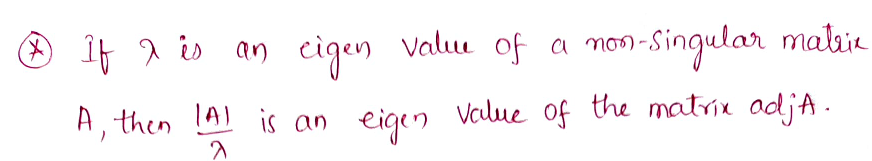 ⊛ If λ is an eigen value of a non-singular matrix
A, then |A|/λ is an eigen value of the matrix adjA.